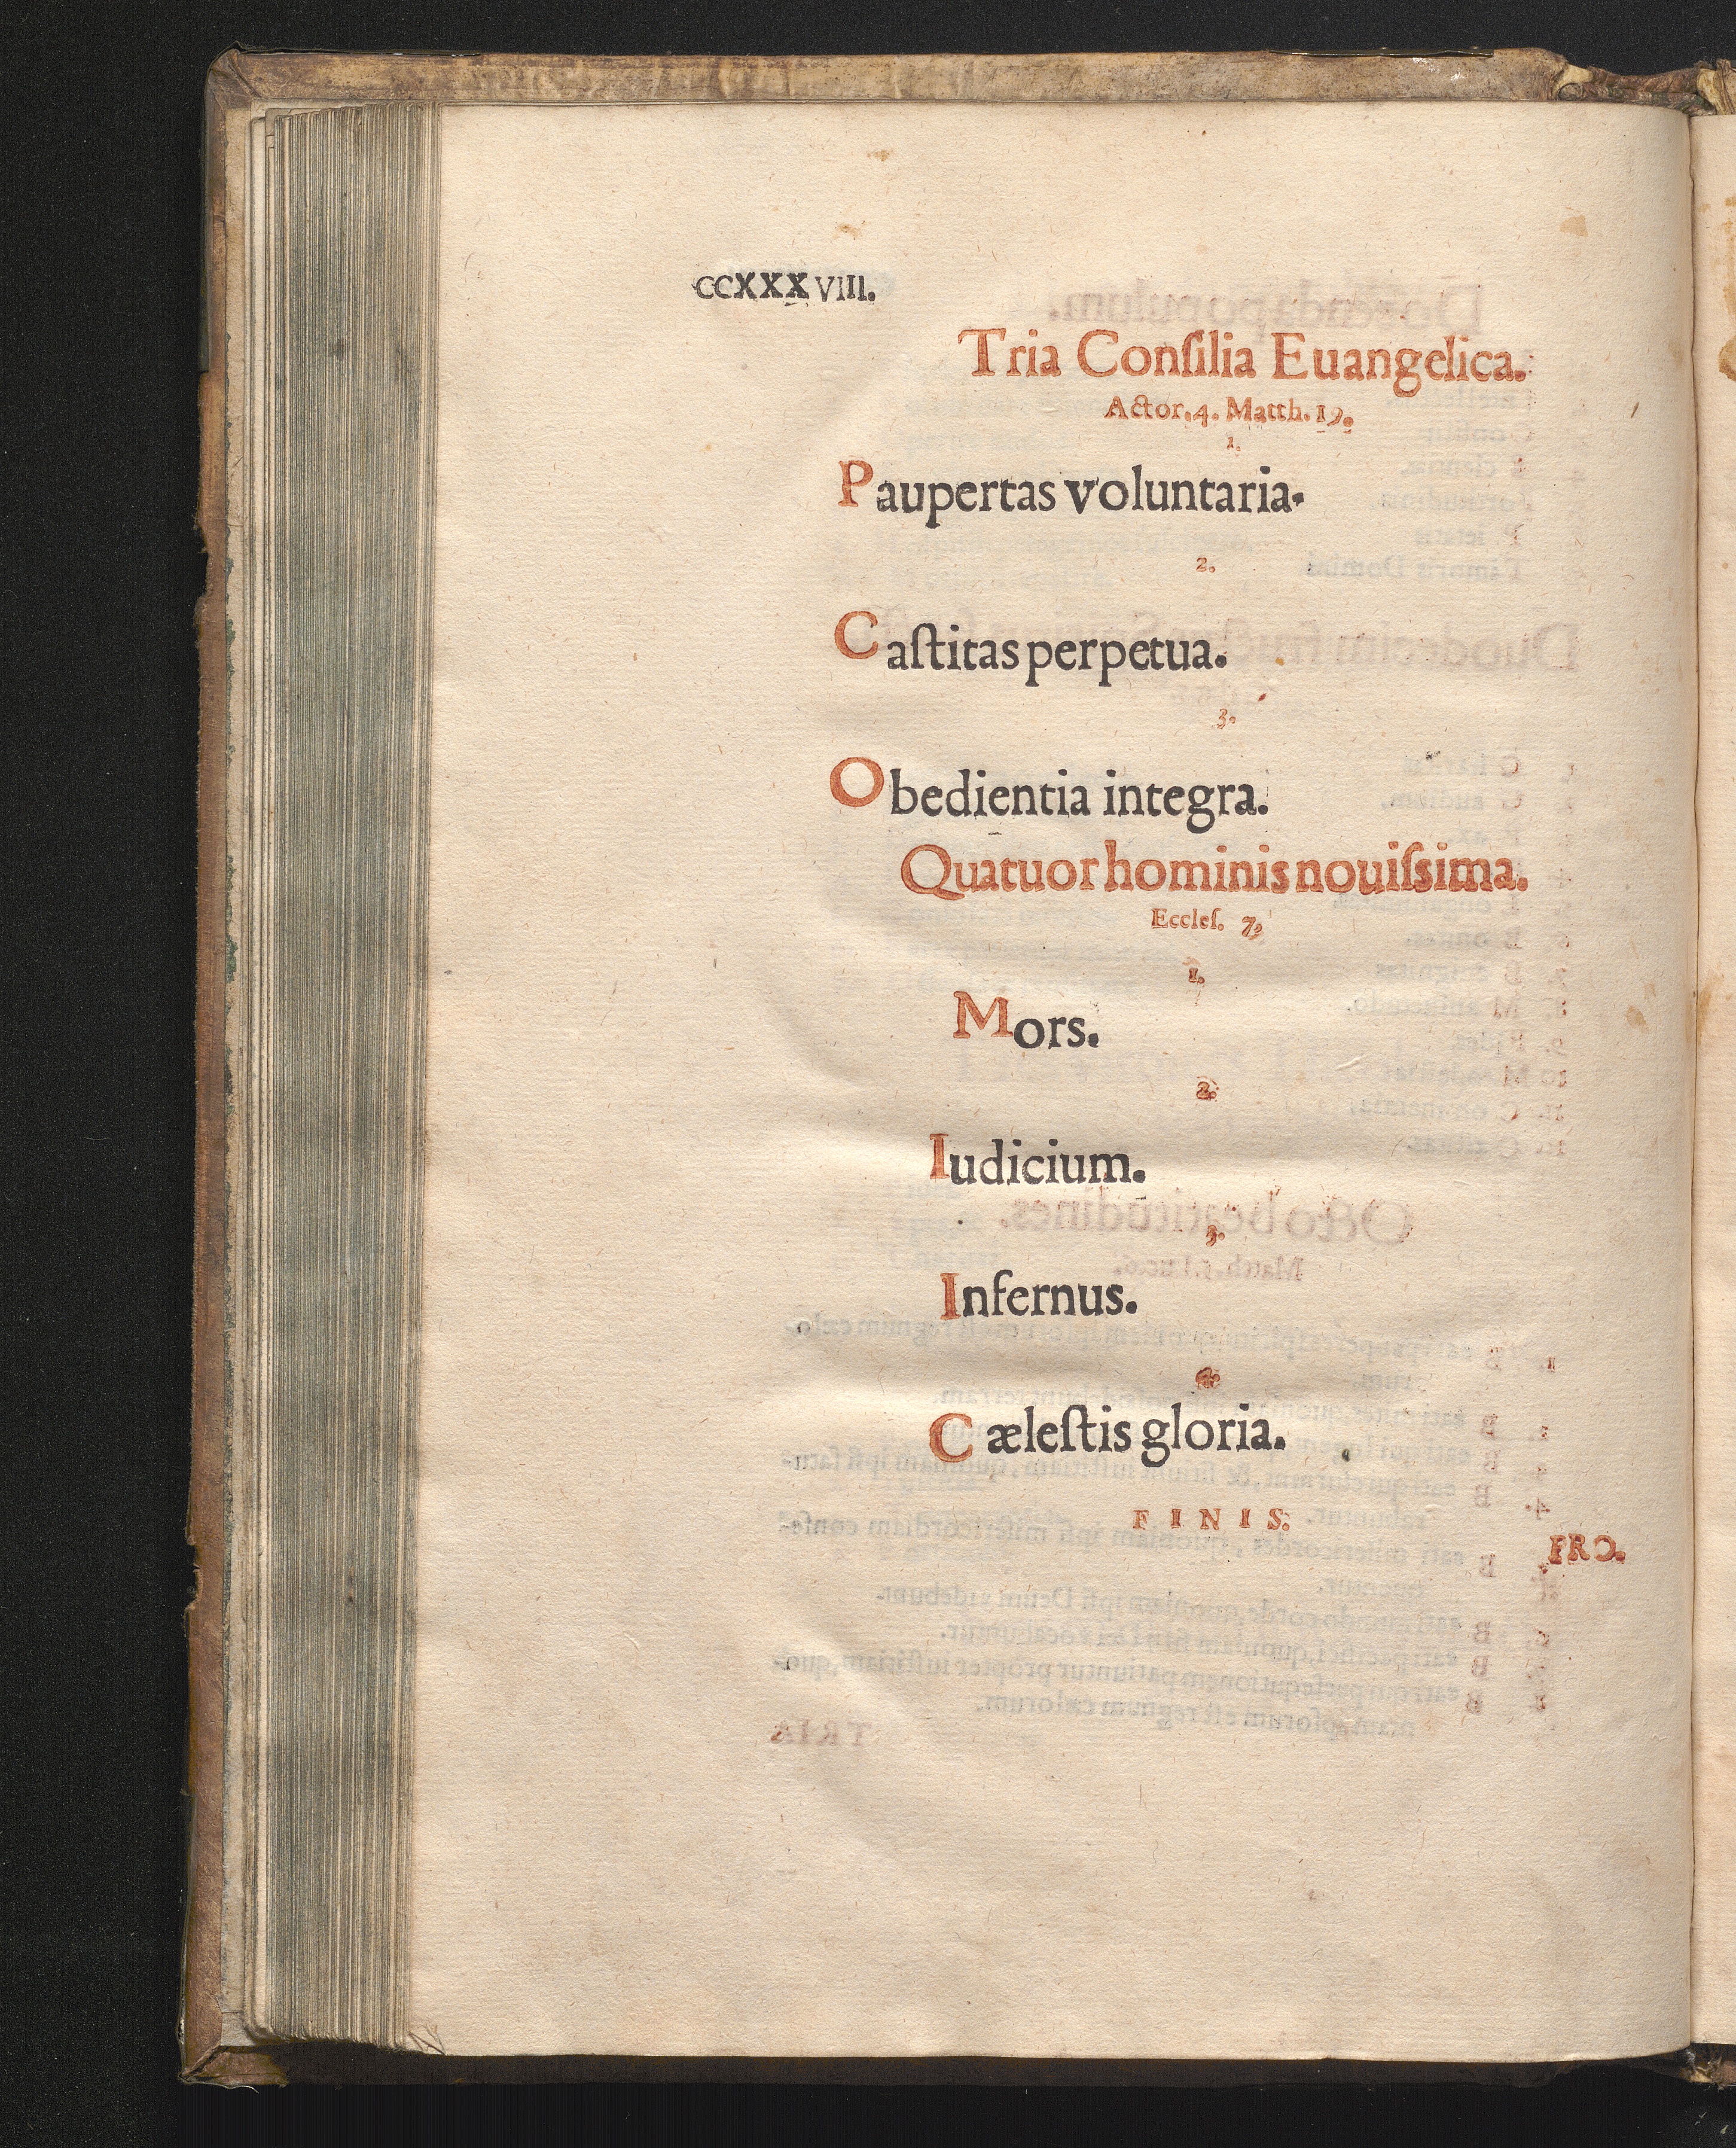 CCXXXVIII.
Tria Conſilia Euangelica.
Actor. 4. Matth. 19.
1.
Paupertas voluntaria.
2.
Caſtitas perpetua.
3.
Obedientia integra.
Quatuor hominis nouiſsima.
Eccleſ. 7,
1.
Mors.
2.
Iudicium.
3.
Infernus.
4.
Cæleſtis gloria.
FINIS.
PRO.